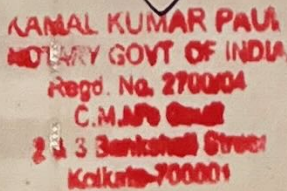 KAMAL KUMAR PAUL
NOTARY GOVT OF INDIA
Regd. No. 2700/04
C.M.M's Court
2 & 3 Bankshall Street
Kolkata-700001